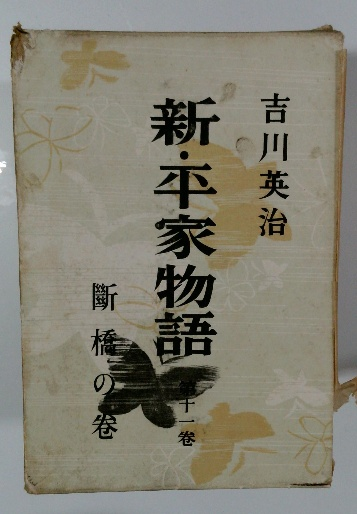 吉川英治
新・平家物語
第十一卷
斷橋の卷